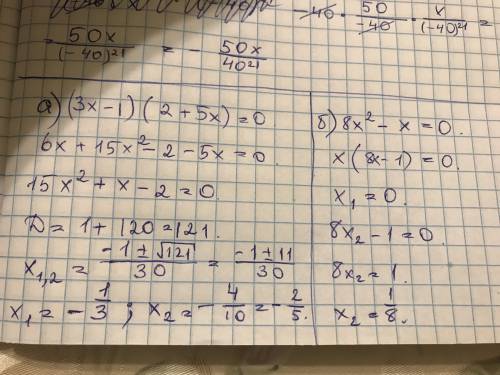 -40 · 50/-40 · x/(-40)²¹ =
= 50x/(-40)²¹ = - 50x/40²¹
а) (3x-1)(2+5x)=0
6x+15x²-2-5x=0.
15x²+x-2=0.
D=1+120=121.
x₁,₂ = -1±√121/30 = -1±11/30
x₁ = -1/3 ; x₂ = -4/10 = -2/5.
б) 8x²-x=0.
x(8x-1)=0.
x₁=0.
8x₂-1=0.
8x₂=1.
x₂=1/8.